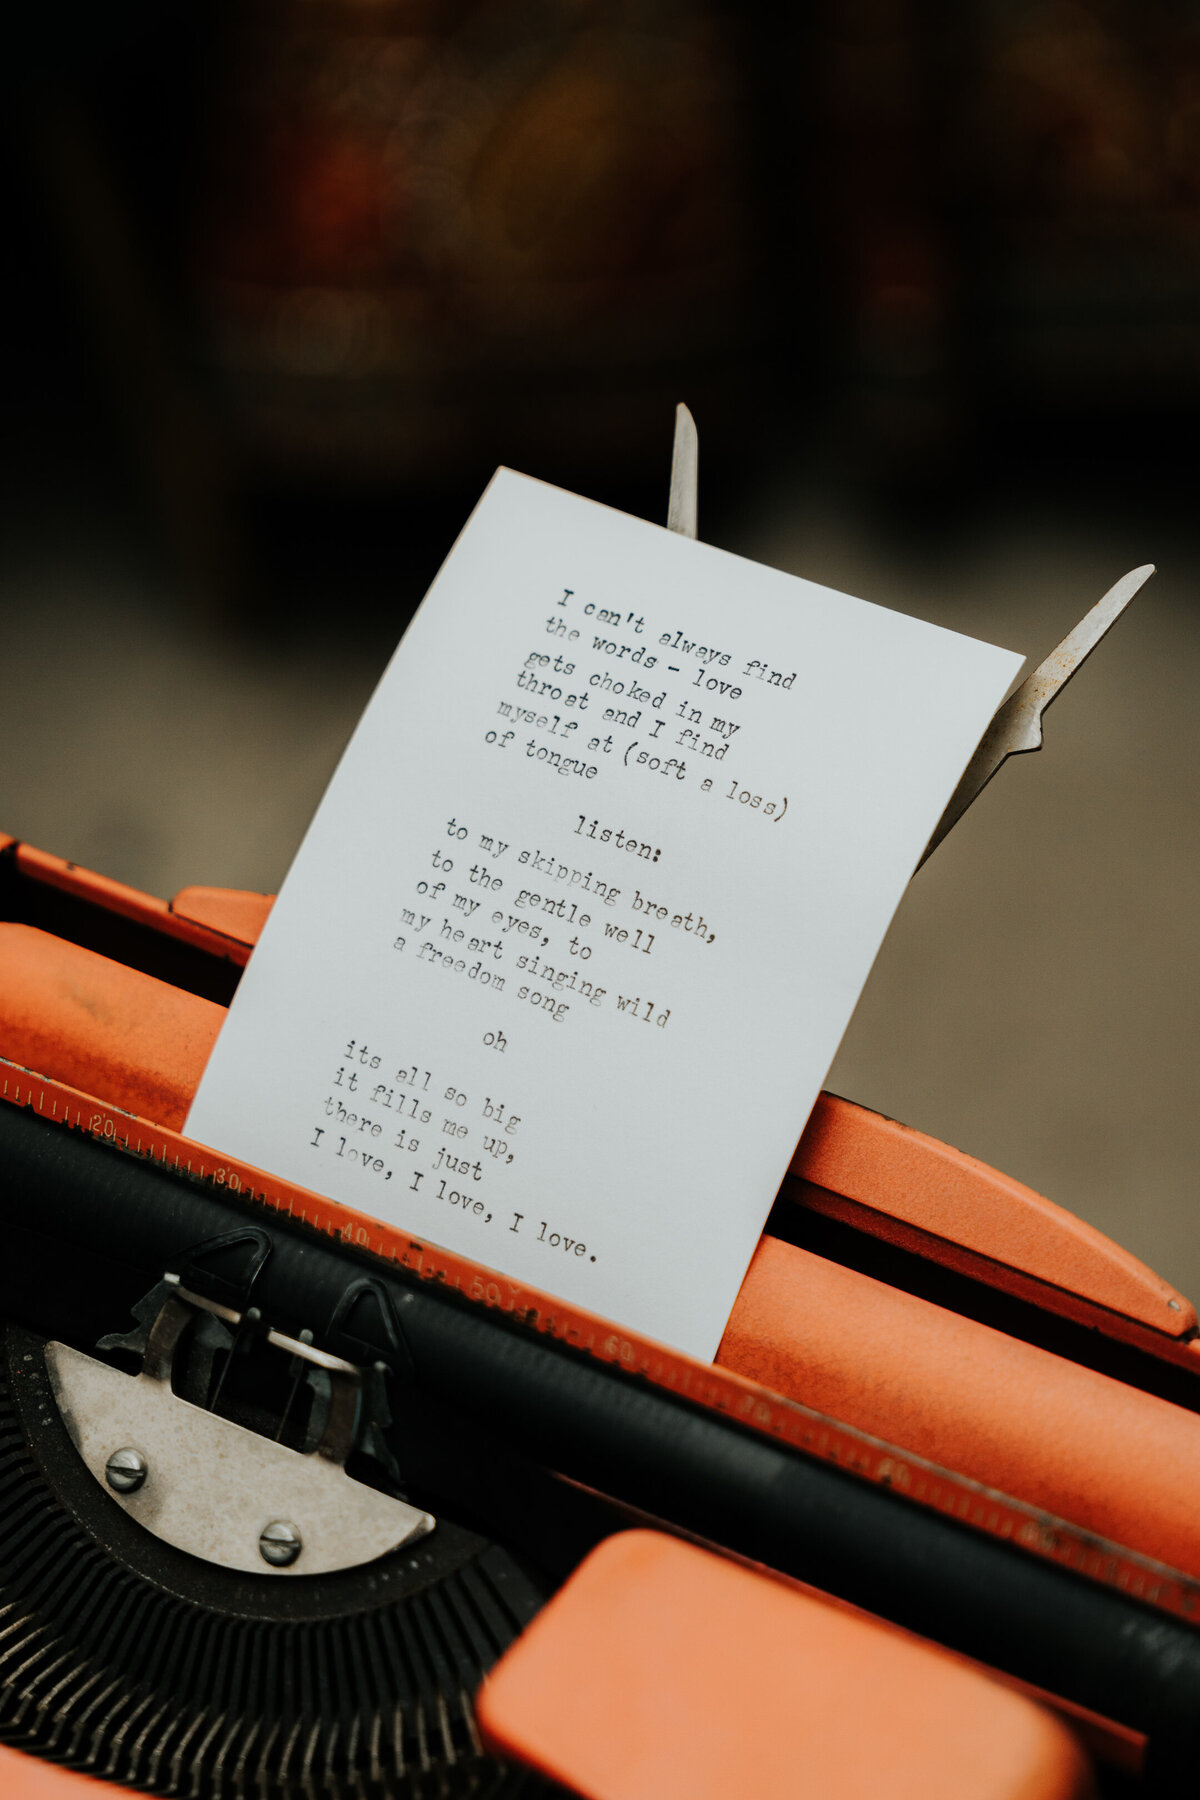 I can't always find
the words - love
gets choked in my
throat and I find
myself at (soft a loss)
of tongue
listen:
to my skipping breath,
to the gentle well
of my eyes, to
my heart singing wild
a freedom song
oh
its all so big
it fills me up,
there is just
I love, I love, I love.
20 30 40 50 60 70 80